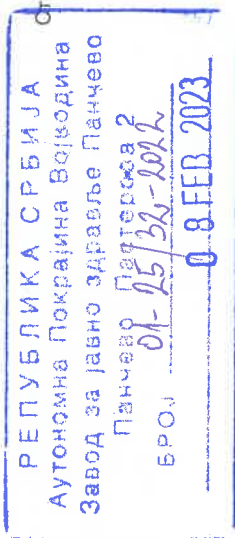 РЕПУБЛИКА СРБИЈА
Аутономна Покрајина Војводина
Завод за јавно здравље Панчево
Панчево Пастерова 2
БРОЈ 01-25/32-2022
08 FEB 2023